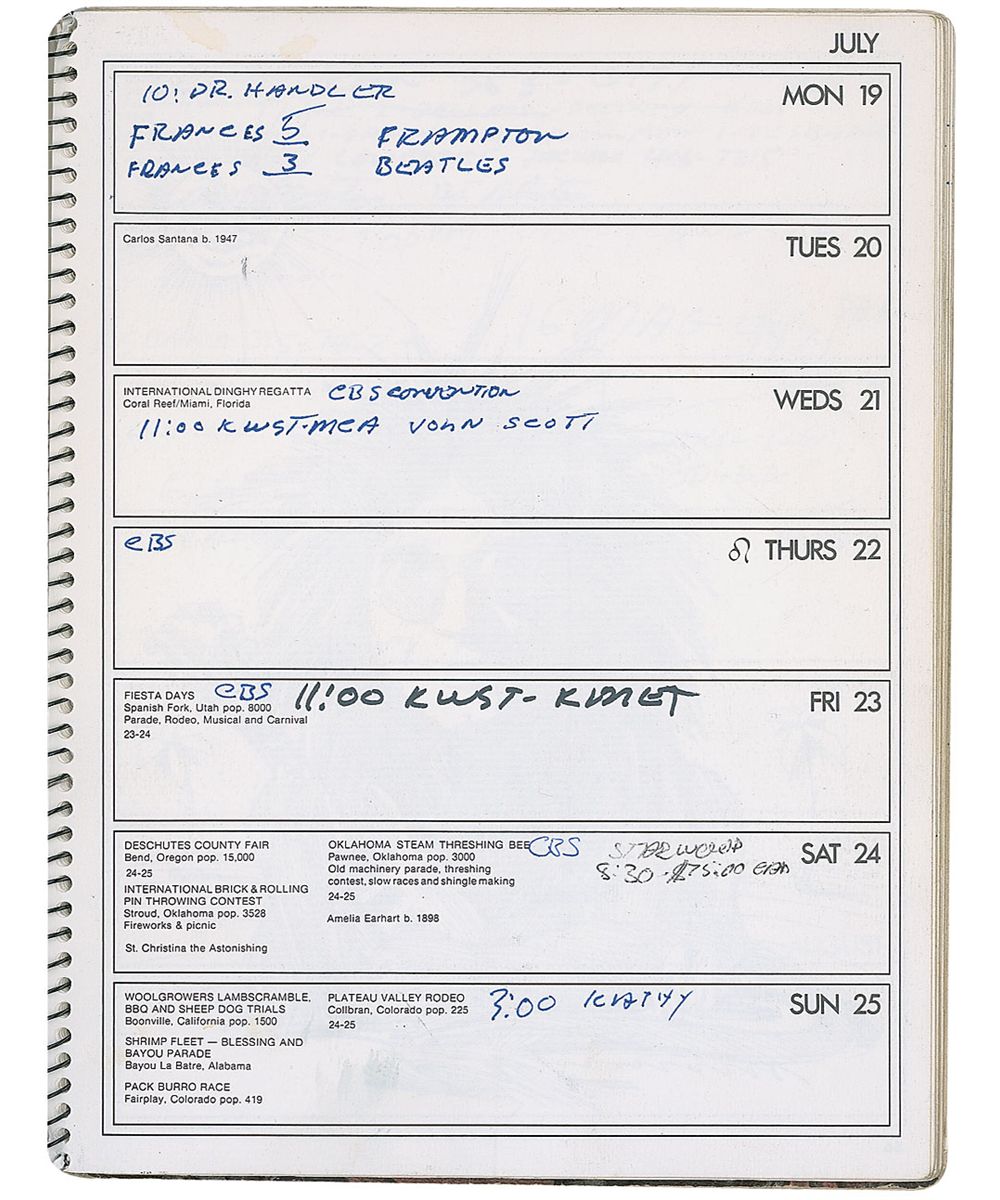 JULY
MON 19
10: DR. HANDLER
FRANCES 5 FRAMPTON
FRANCES 3 BEATLES
TUES 20
Carlos Santana b. 1947
WEDS 21
INTERNATIONAL DINGHY REGATTA CBS CONVENTION
Coral Reef/Miami, Florida
11:00 KWST-MCA JOHN SCOTT
THURS 22
CBS
FRI 23
FIESTA DAYS CBS 11:00 KWST-KMET
Spanish Fork, Utah pop. 8000
Parade, Rodeo, Musical and Carnival
23-24
SAT 24
CBS STARWOOD
8:30 - $75.00
DESCHUTES COUNTY FAIR
Bend, Oregon pop. 15,000
24-25
INTERNATIONAL BRICK & ROLLING
PIN THROWING CONTEST
Stroud, Oklahoma pop. 3528
Fireworks & picnic
St. Christina the Astonishing
OKLAHOMA STEAM THRESHING BEE
Pawnee, Oklahoma pop. 3000
Old machinery parade, threshing
contest, slow races and shingle making
24-25
Amelia Earhart b. 1898
SUN 25
3:00 KATHY
WOOLGROWERS LAMBSCRAMBLE,
BBQ AND SHEEP DOG TRIALS
Boonville, California pop. 1500
SHRIMP FLEET — BLESSING AND
BAYOU PARADE
Bayou La Batre, Alabama
PACK BURRO RACE
Fairplay, Colorado pop. 419
PLATEAU VALLEY RODEO
Collbran, Colorado pop. 225
24-25